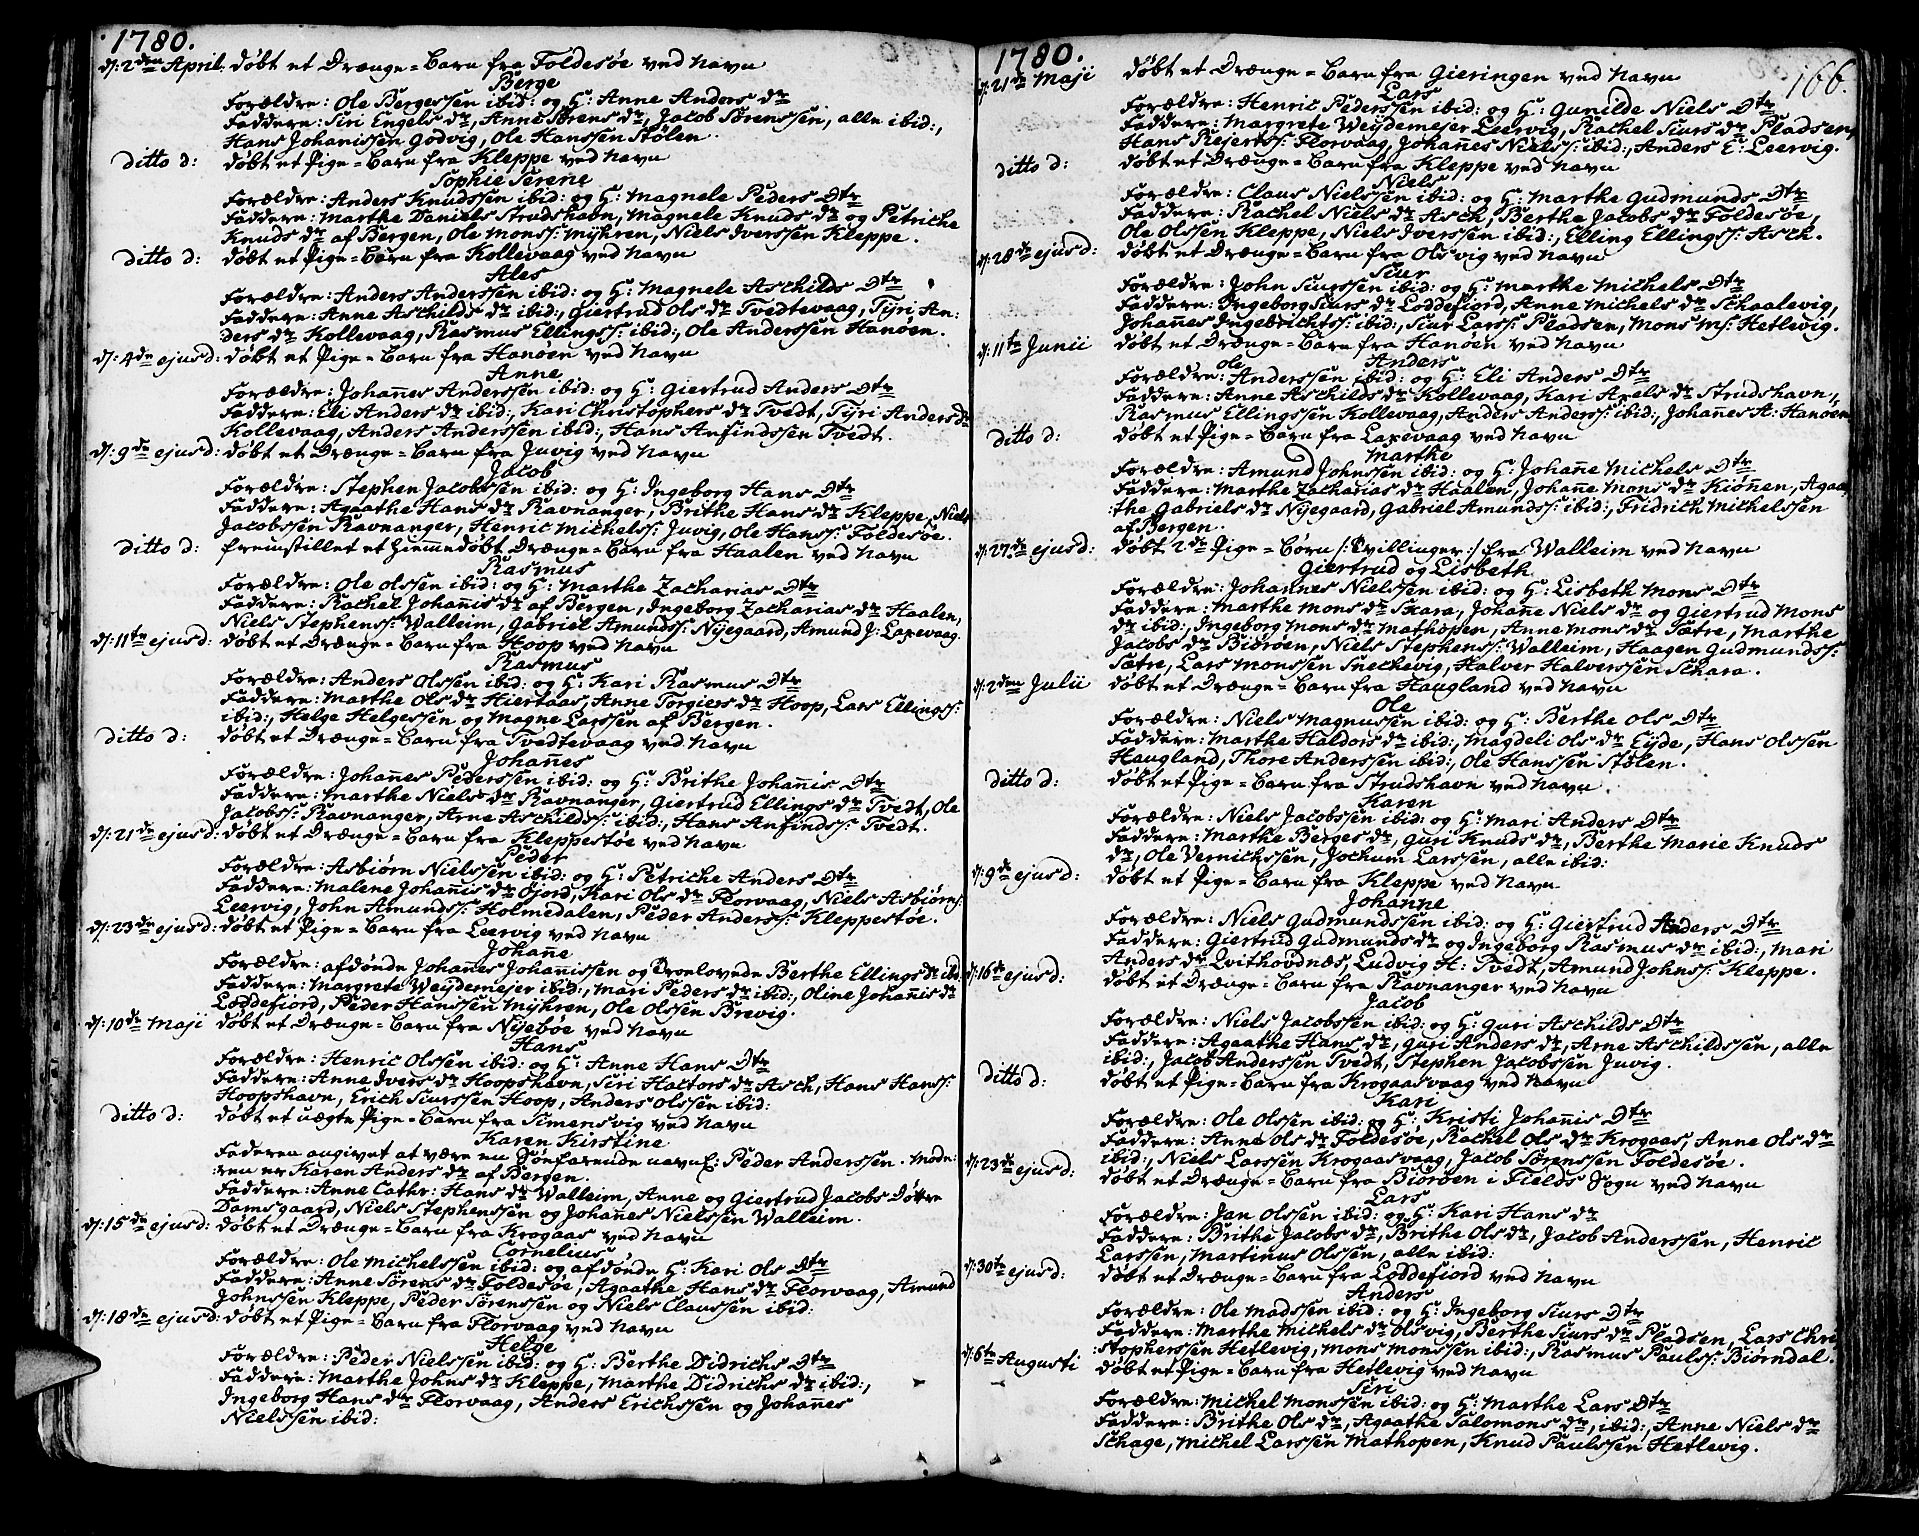 1780.
d: 2den April. døbt et Drænge-Barn fra Foldesøe ved Navn
Berge
Forældre: Ole Bergessen ibid: og H: Anne Anders dtr
Faddere: Siri Engels dr, Anne Sørens dr, Jacob Sørenssen, alle ibid:,
Hans Johannissen Godvig, Ole Hanssen Stølen.
ditto d: døbt et Pige-Barn fra Kleppe ved Navn
Sophie Serene
Forældre: Anders Knudssen ibid: og H: Magnele Peders Dtr
Faddere: Marthe Daniels Strudshavn, Magnele Knuds dr og Petriche
Knuds dr af Bergen, Ole Monss: Myhren, Niels Iverssen Kleppe.
ditto d: døbt et Pige-Barn fra Kollevaag ved Navn
Ales
Forældre: Anders Anderssen ibid: og H: Magnele Aschilds Dtr
Faddere: Anne Aschilds dr ibid:, Giertrud Ols dr Tvedtevaag, Tyri An-
ders dr Kollevaag, Rasmus Ellingss: ibid:, Ole Anderssen Hanøen.
d: 4de ejusd: døbt et Pige-Barn fra Hanøen ved Navn
Anne
Forældre: Johannes Anderssen ibid: og H: Giertrud Anders Dtr
Faddere: Eli Anders dr ibid:, Kari Christophers dr Tvedt, Tyri Anders dr
Kollevaag, Anders Anderssen ibid:, Hans Anfindssen Tvedt.
d: 9de ejusd: døbt et Drænge-Barn fra Juvig ved Navn
Jacob
Forældre: Stephen Jacobssen ibid: og H: Ingeborg Hans Dtr
Faddere: Agaathe Hans dr Ravnanger, Brithe Hans dr Kleppe, Niels
Jacobssen Ravnanger, Henric Michelss: Juvig, Ole Hanss: Foldesøe.
ditto d: fremstillet et hiemmedøbt Drænge-Barn fra Haalen ved Navn
Rasmus
Forældre: Ole Olssen ibid: og H: Marthe Zacharias Dtr
Faddere: Rachel Johannis dr af Bergen, Ingeborg Zacharias dr Haalen,
Niels Stephenss: Walleim, Gabriel Amundss: Nyegaard, Amund J: Laxevaag.
d: 11te ejusd: døbt et Drænge-Barn fra Hoop ved Navn
Rasmus
Forældre: Anders Olssen ibid: og H: Kari Rasmus Dtr
Faddere: Marthe Ols dr Hiertaas, Anne Torgiers dr Hoop, Lars Ellingss:
ibid:, Helge Helgessen og Magne Larssen af Bergen.
ditto d: døbt et Drænge-Barn fra Tvedtevaag ved Navn
Johannes
Forældre: Johannes Pederssen ibid: og H: Brithe Johannis Dtr
Faddere: Marthe Niels dr Ravnanger, Giertrud Ellings dr Tvedt, Ole
Jacobss: Ravnanger, Arne Aschildss: ibid:, Hans Anfindss: Tvedt.
d: 21de ejusd: døbt et Drænge-Barn fra Kleppestøe ved Navn
Peder
Forældre: Asbiørn Nielssen ibid: og H: Petriche Anders Dtr
Faddere: Malene Johannis dr Øjord, Kari Ols dr Florvaag, Niels Asbiørns:
Leervig, John Amundss: Holmedalen, Peder Anderss: Kleppestøe.
d: 23de ejusd: døbt et Pige-Barn fra Leervig ved Navn
Johanne
Forældre: afdønde Johannes Johannissen og Troelovede Berthe Ellings dr ibid:
Faddere: Margrete Weydemejer ibid:, Mari Peders dr ibid:, Oline Johannis dr
Loddefiord, Peder Hanssen Myhren, Ole Olssen Brevig.
d: 10de Maji døbt et Drænge-Barn fra Nyebøe ved Navn
Hans
Forældre: Henric Olssen ibid: og H: Anne Hans Dtr
Faddere: Anne Ivers dr Hoopshavn, Siri Haltors dr Asch, Hans Hanss:
Hoopshavn, Erich Siurssen Hoop, Anders Olssen ibid:
ditto d: døbt et uægte Pige-Barn fra Simensvig ved Navn
Karen Kirstine
Faderen angivet at være en Søefarende navnl: Peder Anderssen. Mode-
ren er Karen Anders dr af Bergen.
Faddere: Anne Cathr: Hans dr Walleim, Anne og Giertrud Jacobs Døttre
Damsgaard, Niels Stephenssen og Johannes Nielssen Walleim.
d: 15de ejusd: døbt et Drænge-Barn fra Krogaas ved Navn
Cornelius
Forældre: Ole Michelssen ibid: og afdønde H: Kari Ols Dtr
Faddere: Anne Sørens dr Foldesøe, Agaathe Hans dr Florvaag, Amund
Johnssen Kleppe, Peder Sørenssen og Niels Claussen ibid:
d: 18de ejusd: døbt et Pige-Barn fra Florvaag ved Navn
Helge
Forældre: Peder Nielssen ibid: og H: Berthe Didrichs Dtr
Faddere: Marthe Johns dr Kleppe, Marthe Didrichs dr ibid:,
Ingeborg Hans dr Florvaag, Anders Erichssen og Johannes
Nielssen ibid:
1780.
166.
d: 21de Maji døbt et Drænge-Barn fra Gieringen ved Navn
Lars
Forældre: Henric Pederssen ibid: og H: Gunilde Niels Dtr
Faddere: Margrete Weydemejer Leervig, Rachel Siurs dr Pladsen,
Hans Rejerts: Florvaag, Johannes Nielss: ibid:, Anders E: Leervig.
ditto d: døbt et Drænge-Barn fra Kleppe ved Navn
Niels
Forældre: Claus Nielssen ibid: og H: Marthe Gudmunds Dtr
Faddere: Rachel Niels dr Asch, Berthe Jacobs dr Foldesøe,
Ole Olssen Kleppe, Niels Iverssen ibid:, Elling Ellingss: Asch.
d: 28de ejusd: døbt et Drænge-Barn fra Olsvig ved Navn
Siur
Forældre: John Siurssen ibid: og H: Marthe Michels Dtr
Faddere: Ingeborg Siurs dr Loddefiord, Anne Michels dr Schaalevig,
Johannes Ingebrichtss: ibid:, Siur Larss: Pladsen, Mons Ms: Hetlevig.
d: 11te Junii døbt et Drænge-Barn fra Hanøen ved Navn
Anders
Forældre: Ole Anderssen ibid: og H: Eli Anders Dtr
Faddere: Anne Aschilds dr Kollevaag, Kari Axels dr Strudshavn,
Rasmus Ellingssen Kollevaag, Anders Anderss: ibid:, Johannes A: Hanøen
ditto d: døbt et Pige-Barn fra Laxevaag ved Navn
Marthe
Forældre: Amund Johnssen ibid: og H: Johanne Michels Dtr
Faddere: Marthe Zacharias dr Haalen, Johanne Mons dr Kiønen, Agaa-
the Gabriels dr Nyegaard, Gabriel Amundss: ibid:, Fridrich Michelssen
af Bergen.
d: 27de ejusd: døbt 2de Pige-Børn /: Tvillinger :/ fra Walleim ved Navn
Giertrud og Lisbeth
Forældre: Johannes Nielssen ibid: og H: Lisbeth Mons Dtr
Faddere: Marthe Mons dr Skara, Johanne Niels dr og Giertrud Mons
dr ibid:, Ingeborg Mons dr Mathopen, Anne Mons dr Sætre, Marthe
Jacobs dr Biørøen, Niels Stephenss: Walleim, Haagen Gudmundss:
Sætre, Lars Monssen Snechevig, Halver Halverssen Skara.
d: 2den Julii døbt et Drænge-Barn fra Haugland ved Navn
Ole
Forældre: Niels Magnussen ibid: og H: Berthe Ols Dtr
Faddere: Marthe Haldors dr ibid:, Magdeli Ols dr Eyde, Hans Olssen
Haugland, Thore Anderssen ibid:, Ole Hanssen Stølen.
ditto d: døbt et Pige-Barn fra Strudshavn ved Navn.
Karen
Forældre: Niels Jacobssen ibid: og H: Mari Anders Dtr
Faddere: Marthe Berges dr, Guri Knuds dr, Berthe Marie Knuds
dr, Ole Vernichssen, Jochum Larssen, alle ibid:
d: 9de ejusd: døbt et Pige-Barn fra Kleppe ved Navn
Johanne
Forældre: Niels Gudmundssen ibid: og H: Giertrud Anders Dtr
Faddere: Giertrud Gudmunds dr og Ingeborg Rasmus dr ibid:, Mari
Anders dr Qvithovdnæs, Ludvig H: Tvedt, Amund Johnss: Kleppe.
d: 16de ejusd: døbt et Drænge-Barn fra Ravnanger ved Navn
Jacob
Forældre: Niels Jacobssen ibid: og H: Guri Aschilds Dtr
Faddere: Agaathe Hans dr, Guri Anders dr, Arne Aschildssen, alle
ibid:, Jacob Anderssen Tvedt, Stephen Jacobssen Juvig.
ditto d: døbt et Pige-Barn fra Krogaasvaag ved Navn
Kari
Forældre: Ole Olssen ibid: og H: Kristi Johannis Dtr
Faddere: Anne Ols dr Foldesøe, Rachel Ols dr Krogaas, Anne Ols dr
ibid:, Niels Larssen Krogaasvaag, Jacob Sørenssen Foldesøe.
d: 23de ejusd: døbt et Drænge-Barn fra Biørøen i Fields Sogn ved Navn
Lars
Forældre: Jan Olssen ibid: og H: Kari Hans dr
Faddere: Brithe Jacobs dr, Brithe Ols dr, Jacob Anderssen, Henric
Larssen, Martinus Olssen, alle ibid:
d: 30te ejusd: døbt et Drænge-Barn fra Loddefiord ved Navn
Anders
Forældre: Ole Madssen ibid: og H: Ingeborg Siurs Dtr
Faddere: Marthe Michels dr Olsvig, Berthe Siurs dr Pladsen, Lars Chri-
stopherssen Hetlevig, Mons Monssen ibid:, Rasmus Paulss: Biørndal.
d: 6te Augusti døbt et Pige-Barn fra Hetlevig ved Navn
Siri
Forældre: Michel Monssen ibid: og H: Marthe Lars Dtr
Faddere: Brithe Ols dr, Agaathe Salomons dr, ibid:, Anne Niels dr
Schage, Michel Larssen Mathopen, Knud Paulssen Hetlevig.